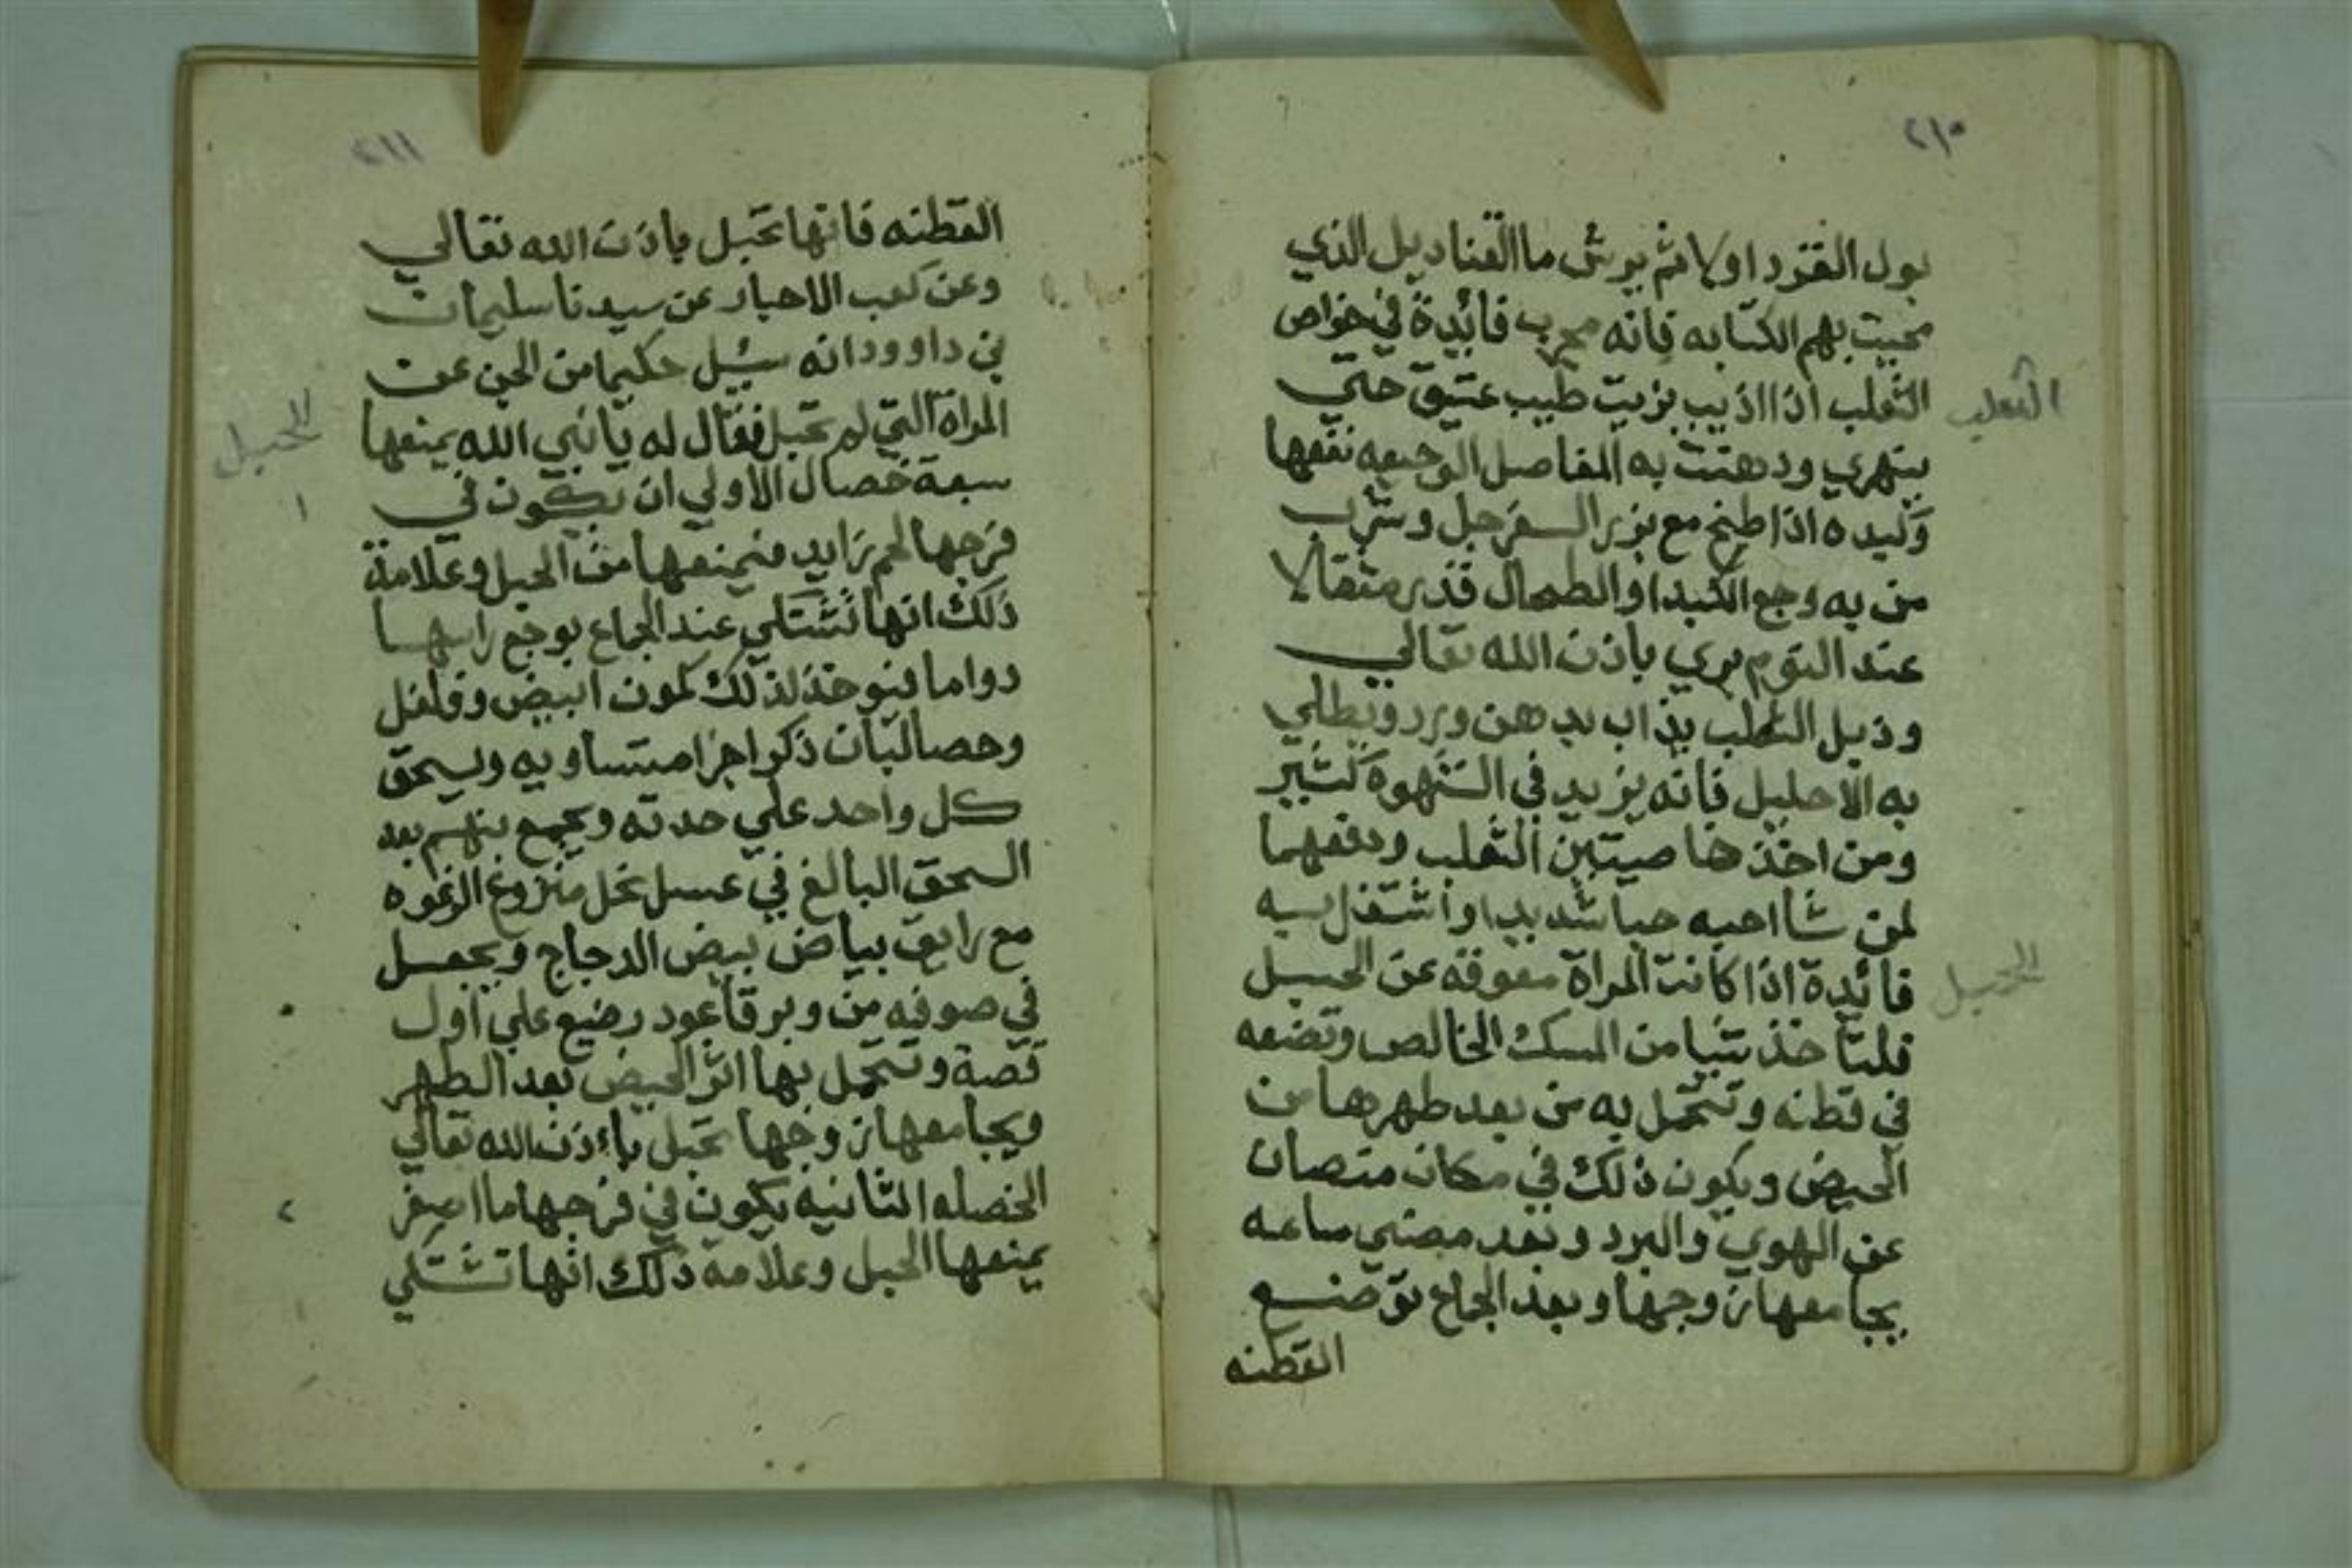 ٢١٠
بول القرد اولا ثم يرش ما القناديل الذي
محيت بهم الكتابه فانه مجرب فائدة في خواص
الثعلب اذا اذيب بزيت طيب عتيق حتي
الثعلب
ينهري ودهنت به المفاصل الوجيعه نفعها
وكبده اذا طبخ مع بزر السفرجل وشرب
من به وجع الكبد او الطحال قدر مثقالا
عند النوم بري باذن الله تعالي
وذيل الثعلب يذاب بدهن ورد ويطلي
به الاحليل فانه يزيد في الشهوة كثير
ومن اخذ خاصيتين الثعلب ودفعهما
لمن شا احبه حبا شديدا واشتغل به
فائدة اذا كانت المراة معوقه عن الحبل
الحبل
فلتاخذ شيا من المسك الخالص وتضعه
في قطنه وتتحمل به من بعد طهرها من
الحيض ويكون ذلك في مكان منصان
عن الهوي والبرد وبعد مضي ساعه
يجامعها زوجها وبعد الجماع توضع
القطنه
٢١١
القطنه فانها تحبل باذن الله تعالي
وعن كعب الاحبار عن سيدنا سليمان
بن داوود انه سئيل حكيما من الجن عن
المراة التي لم تحبل فقال له يا نبي الله يمنعها
الحبل
سبعة خصال الاولي ان يكون في
١
فرجها لحم زايد فيمنعها من الحبل وعلامة
ذلك انها تشتكي عند الجماع بوجع راسها
دواما فيوخذ لذلك كمون ابيض وفلفل
وحصالبان ذكر اجزا متساويه ويسحق
كل واحد علي حدته ويجمع بينهم بعد
السحق البالغ في عسل نحل منزوع الرغوه
مع رايق بياض بيض الدجاج ويجعل
في صوفه من وبر قاعود رضيع علي اول
قصة وتتحمل بها اثر الحيض بعد الطهر
ويجامعها زوجها تحبل باءذن الله تعالي
الخصله الثانيه يكون في فرجها ما اصفر
٢
يمنعها الحبل وعلامة ذلك انها تشتكي